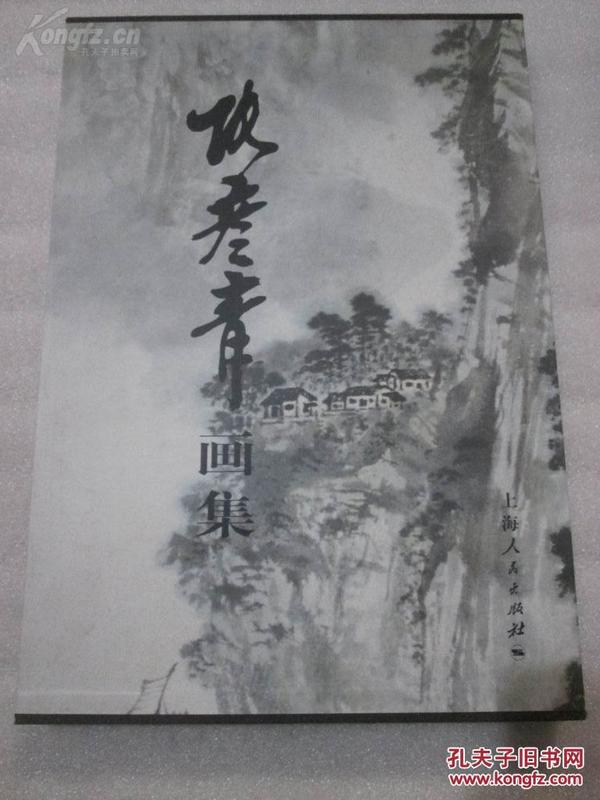 Kongfz.cn
孔夫子拍卖网
张彦青
画集
上海人民出版社
孔夫子旧书网
www.kongfz.com